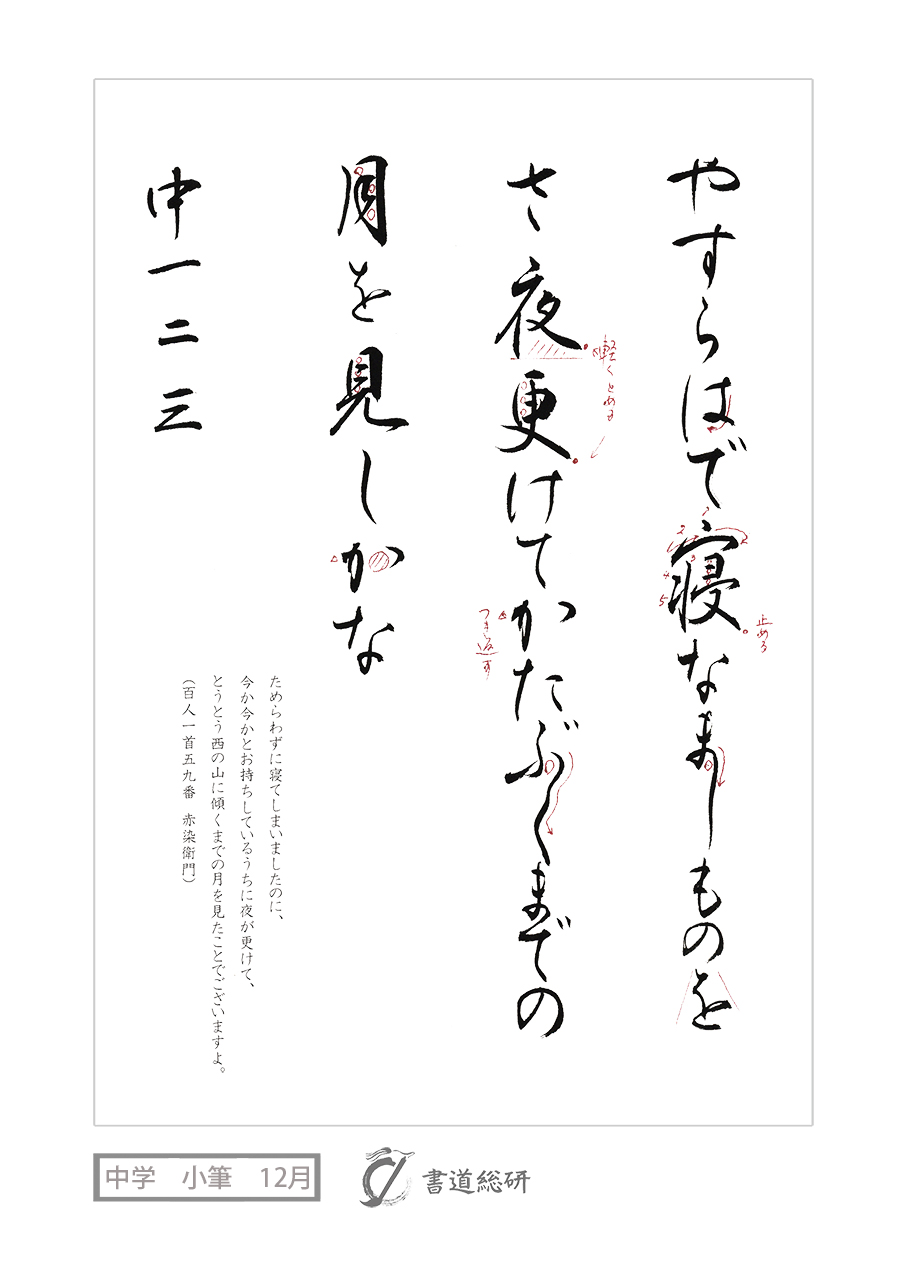 やすらはで寝なましものを
さ夜更けてかたぶくまでの
月を見しかな
中一二三
1
2
2
3
4
5
止める
軽くとめる
つき返す
ためらわずに寝てしまいましたのに、
今か今かとお持ちしているうちに夜が更けて、
とうとう西の山に傾くまでの月を見たことでございますよ。
(百人一首五九番 赤染衛門)
中学 小筆 12月
書道総研